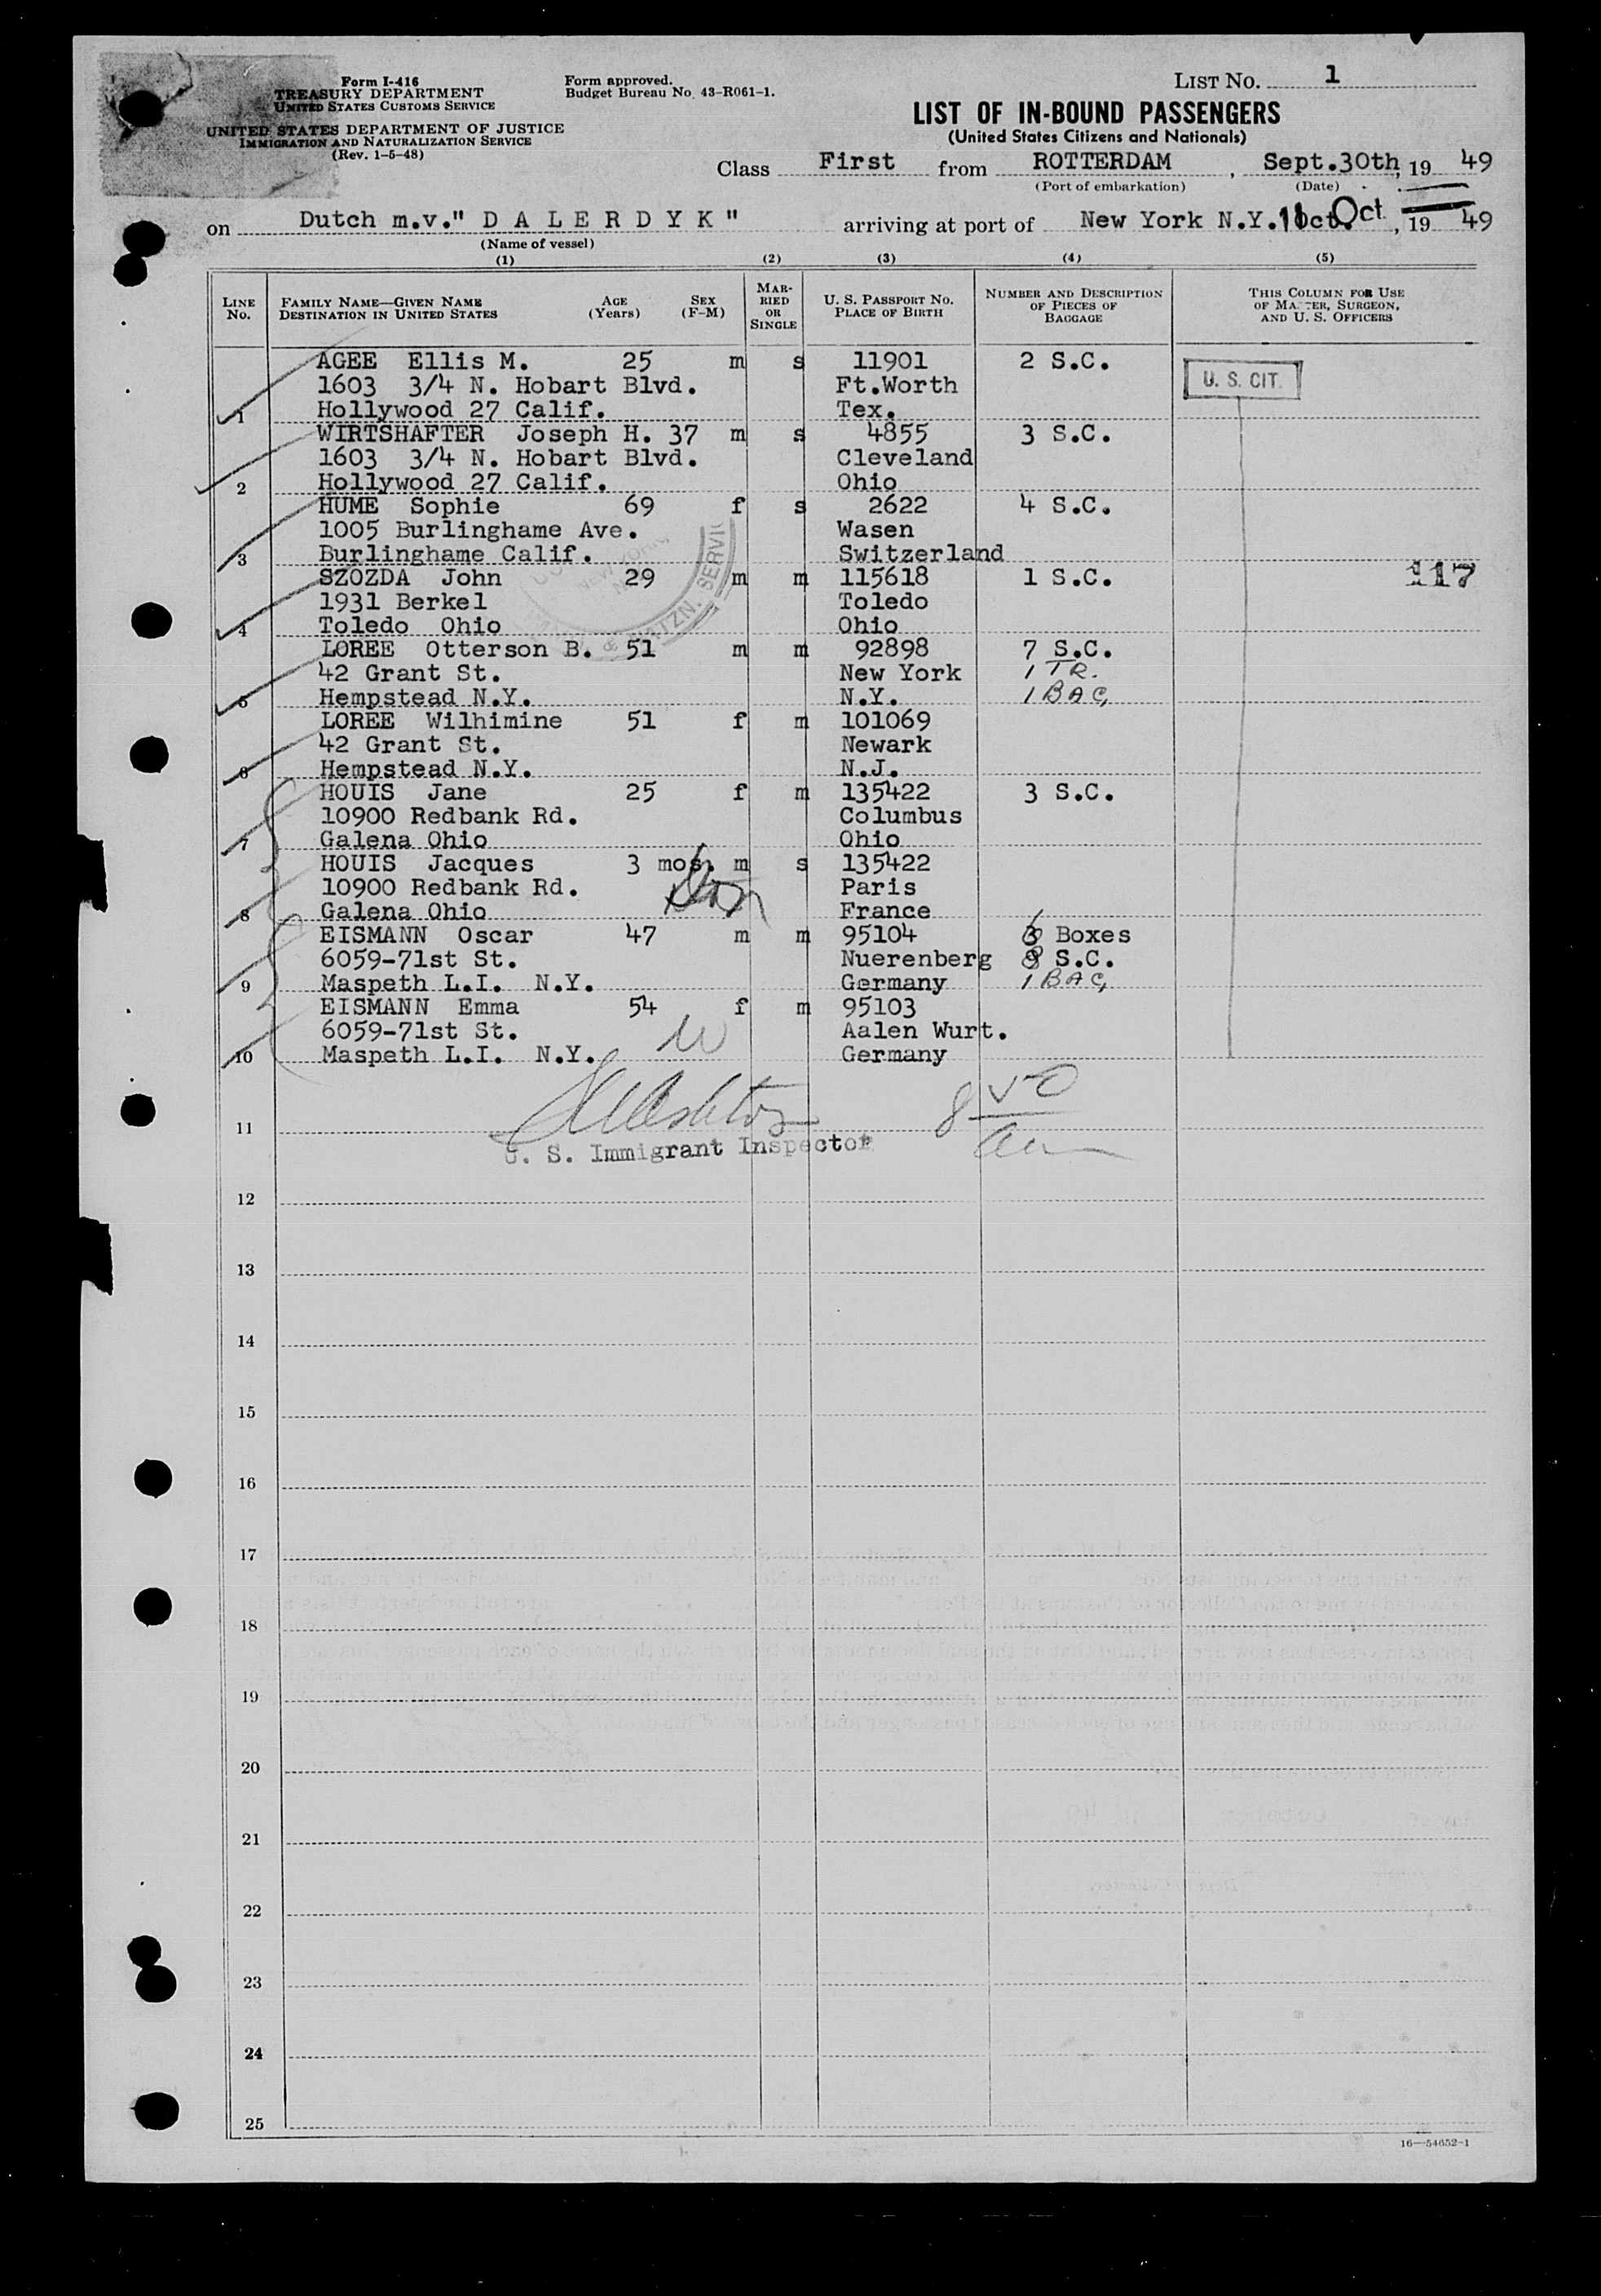 Form I-416
TREASURY DEPARTMENT
UNITED STATES CUSTOMS SERVICE
UNITED STATES DEPARTMENT OF JUSTICE
IMMIGRATION AND NATURALIZATION SERVICE
(Rev. 1-5-48)
Form approved.
Budget Bureau No. 43-R061-1.
LIST No. 1
LIST OF IN-BOUND PASSENGERS
(United States Citizens and Nationals)
Class First from ROTTERDAM, Sept.30th, 19 49
(Port of embarkation) (Date)
on Dutch m.v." D A L E R D Y K " arriving at port of New York N.Y. Oct, 19 49
(Name of vessel)
(1) (2) (3) (4) (5)
LINE No. FAMILY NAME—GIVEN NAME DESTINATION IN UNITED STATES AGE (Years) SEX (F-M) MARRIED OR SINGLE U. S. PASSPORT No. PLACE OF BIRTH NUMBER AND DESCRIPTION OF PIECES OF BAGGAGE THIS COLUMN FOR USE OF MASTER, SURGEON, AND U. S. OFFICERS
AGEE Ellis M. 25 m s 11901 2 S.C.
1603 3/4 N. Hobart Blvd. Ft.Worth U. S. CIT.
1 Hollywood 27 Calif. Tex.
WIRTSHAFTER Joseph H. 37 m s 4855 3 S.C.
1603 3/4 N. Hobart Blvd. Cleveland
2 Hollywood 27 Calif. Ohio
HUME Sophie 69 f s 2622 4 S.C.
1005 Burlinghame Ave. Wasen
3 Burlinghame Calif. Switzerland
SZOZDA John 29 m m 115618 1 S.C. 117
1931 Berkel Toledo
4 Toledo Ohio Ohio
LOREE Otterson B. 51 m m 92898 7 S.C.
42 Grant St. New York 1 TR.
5 Hempstead N.Y. N.Y. 1 BAG
LOREE Wilhimine 51 f m 101069
42 Grant St. Newark
6 Hempstead N.Y. N.J.
HOUIS Jane 25 f m 135422 3 S.C.
10900 Redbank Rd. Columbus
7 Galena Ohio Ohio
HOUIS Jacques 3 mos. m s 135422
10900 Redbank Rd. Paris
8 Galena Ohio France
EISMANN Oscar 47 m m 95104 Boxes
6059-71st St. Nuerenberg S.C.
9 Maspeth L.I. N.Y. Germany 1 BAG
EISMANN Emma 54 f m 95103
6059-71st St. Aalen Wurt.
10 Maspeth L.I. N.Y. Germany
8 50
11
U. S. Immigrant Inspector
12
13
14
15
16
17
18
19
20
21
22
23
24
25
16—54652-1